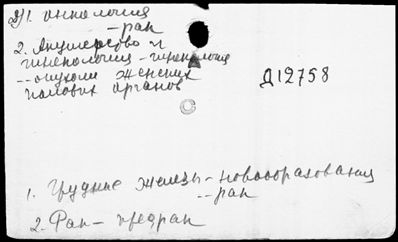 2/1. онкология
-- рак
2. Акушерство и
гинекология - гинекология
-- опухоли женских
половых органов
Д12758
С
1. Грудные железы - новообразования
-- рак
2. Рак - предрак